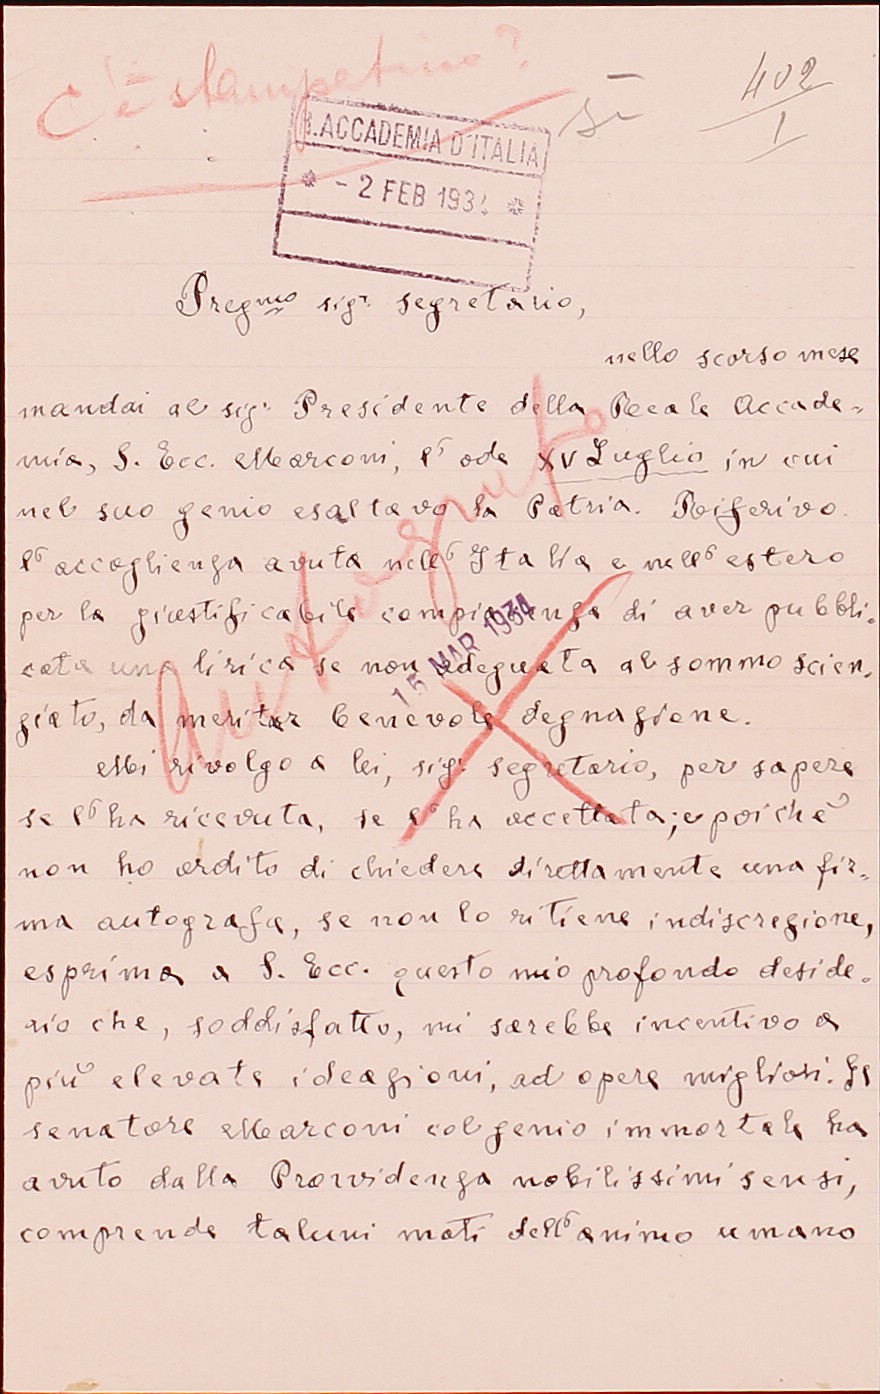 C'è stampatino?
sì
402
1
R. ACCADEMIA D'ITALIA
- 2 FEB 193
Pregmo sigr. segretario,
nello scorso mese
mandai al sigr. Presidente della Reale Accade-
mia, S. Ecc. Marconi, l'ode XV Luglio in cui
nel suo genio esaltavo la Patria. Riferivo
l'accoglienza avuta nell'Italia e nell'estero
per la giustificabile compiacenza di aver pubbli-
cata una lirica se non adeguata al sommo scien-
ziato, da meritar benevola degnazione.
Autografo
15 MAR 1934
Mi rivolgo a lei, sigr. segretario, per sapere
se l'ha ricevuta, se l'ha accettata; e poichè
non ho ardito di chiedere direttamente una fir-
ma autografa, se non lo ritiene indiscrezione,
esprima a S. Ecc. questo mio profondo deside-
rio che, soddisfatto, mi sarebbe incentivo a
più elevate ideazioni, ad opere migliori. Il
senatore Marconi col genio immortale ha
avuto dalla Provvidenza nobilissimi sensi,
comprende taluni moti dell'animo umano